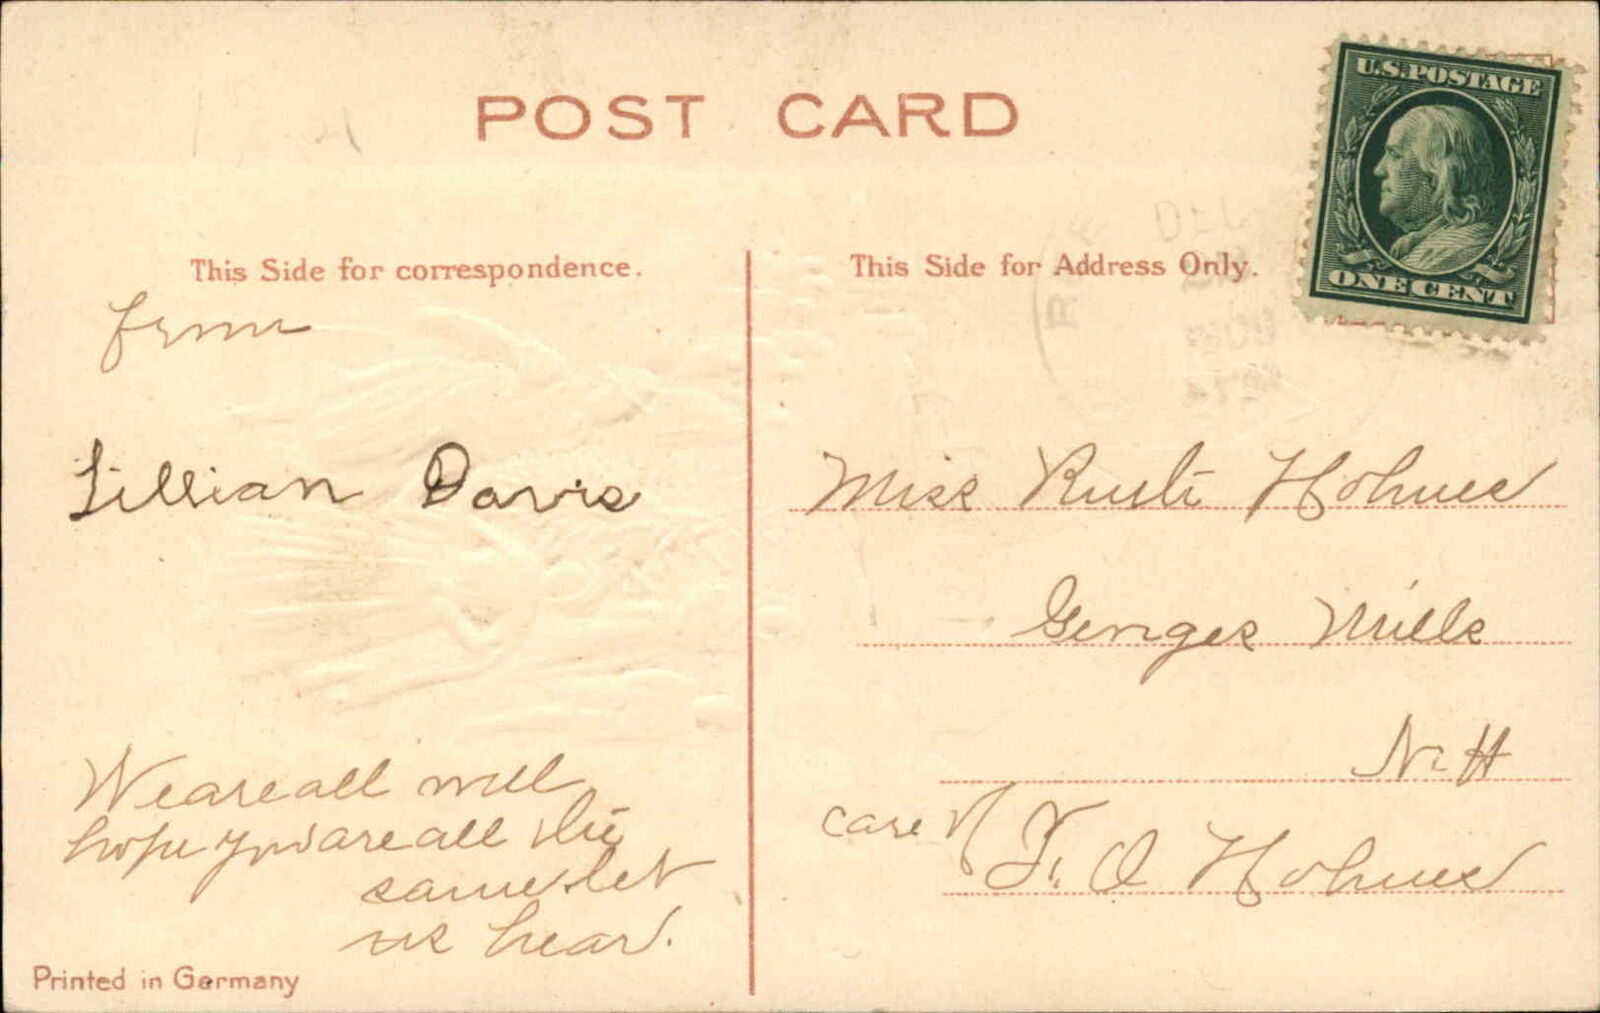 POST CARD
U.S. POSTAGE
ONE CENT
This Side for correspondence.
This Side for Address Only.
DEC
from
Lillian Davis
Miss Ruth Holmes
Georges Mills
N. H
care of F. O Holmes
We are all well
hope you are all the
same let
us hear.
Printed in Germany